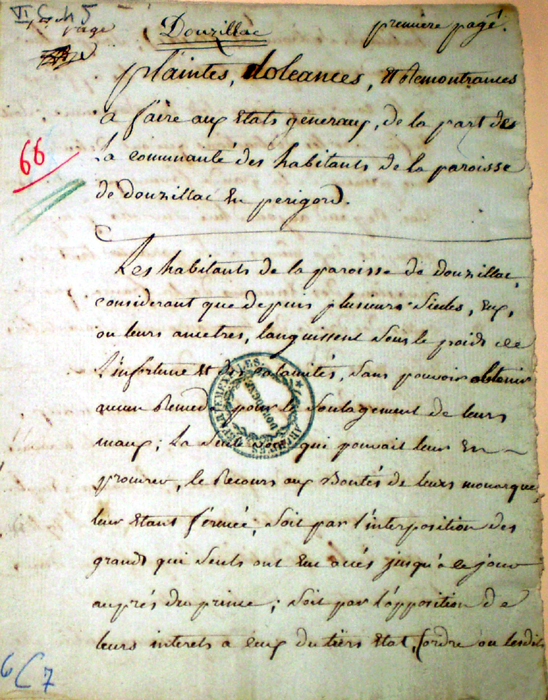 VI C 45
page
Douzillac
premiere page.
66
plaintes, doleances, et remontrances
a faire aux Etats generaux, de la part de
la communauté des habitants de la paroisse
de douzillac en perigord.
Les habitants de la paroisse de douzillac,
considerant que depuis plusieurs siecles, eux,
ou leurs ancetres, languissent sous le poids de
l'infortune et des calamités, sans pouvoir obtenir
aucun Remede pour le soulagement de leurs
maux; la seule voie qui pouvait leur en
procurer, le Recours aux Bontés de leurs monarques
leur etant fermée, soit par l'interposition des
grands qui seuls ont eu accés jusqu'a ce jour
auprés du prince; soit par l'opposition de
leurs interets a ceux du tiers etat, ordre ou lesdits
6 C 7